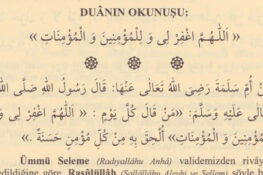 DUÂNIN OKUNUŞU:
« اَللّٰهُمَّ اغْفِرْ لِى وَ لِلْمُؤْمِنِينَ وَ الْمُؤْمِنَاتِ »
نْ اُمِّ سَلَمَةَ رَضِىَ اللهُ تَعَالَى عَنْهَا: قَالَ رَسُولُ اللهِ صَلَّى اللهُ
تَعَالَى عَلَيْهِ وَسَلَّمَ: «مَنْ قَالَ كُلَّ يَوْمٍ : « اَللّٰهُمَّ اغْفِرْ لِى
الْمُؤْمِنِينَ وَ الْمُؤْمِنَاتِ» اُلْحِقَ بِهِ مِنْ كُلِّ مُؤْمِنٍ حَسَنَةٌ ».
Ümmü Seleme (Radıyallâhu Anhâ) validemizden rivây
edildiğine göre, Rasûlüllâh (Sallâllâhu Aleyhi ve Sellem) şöyle b